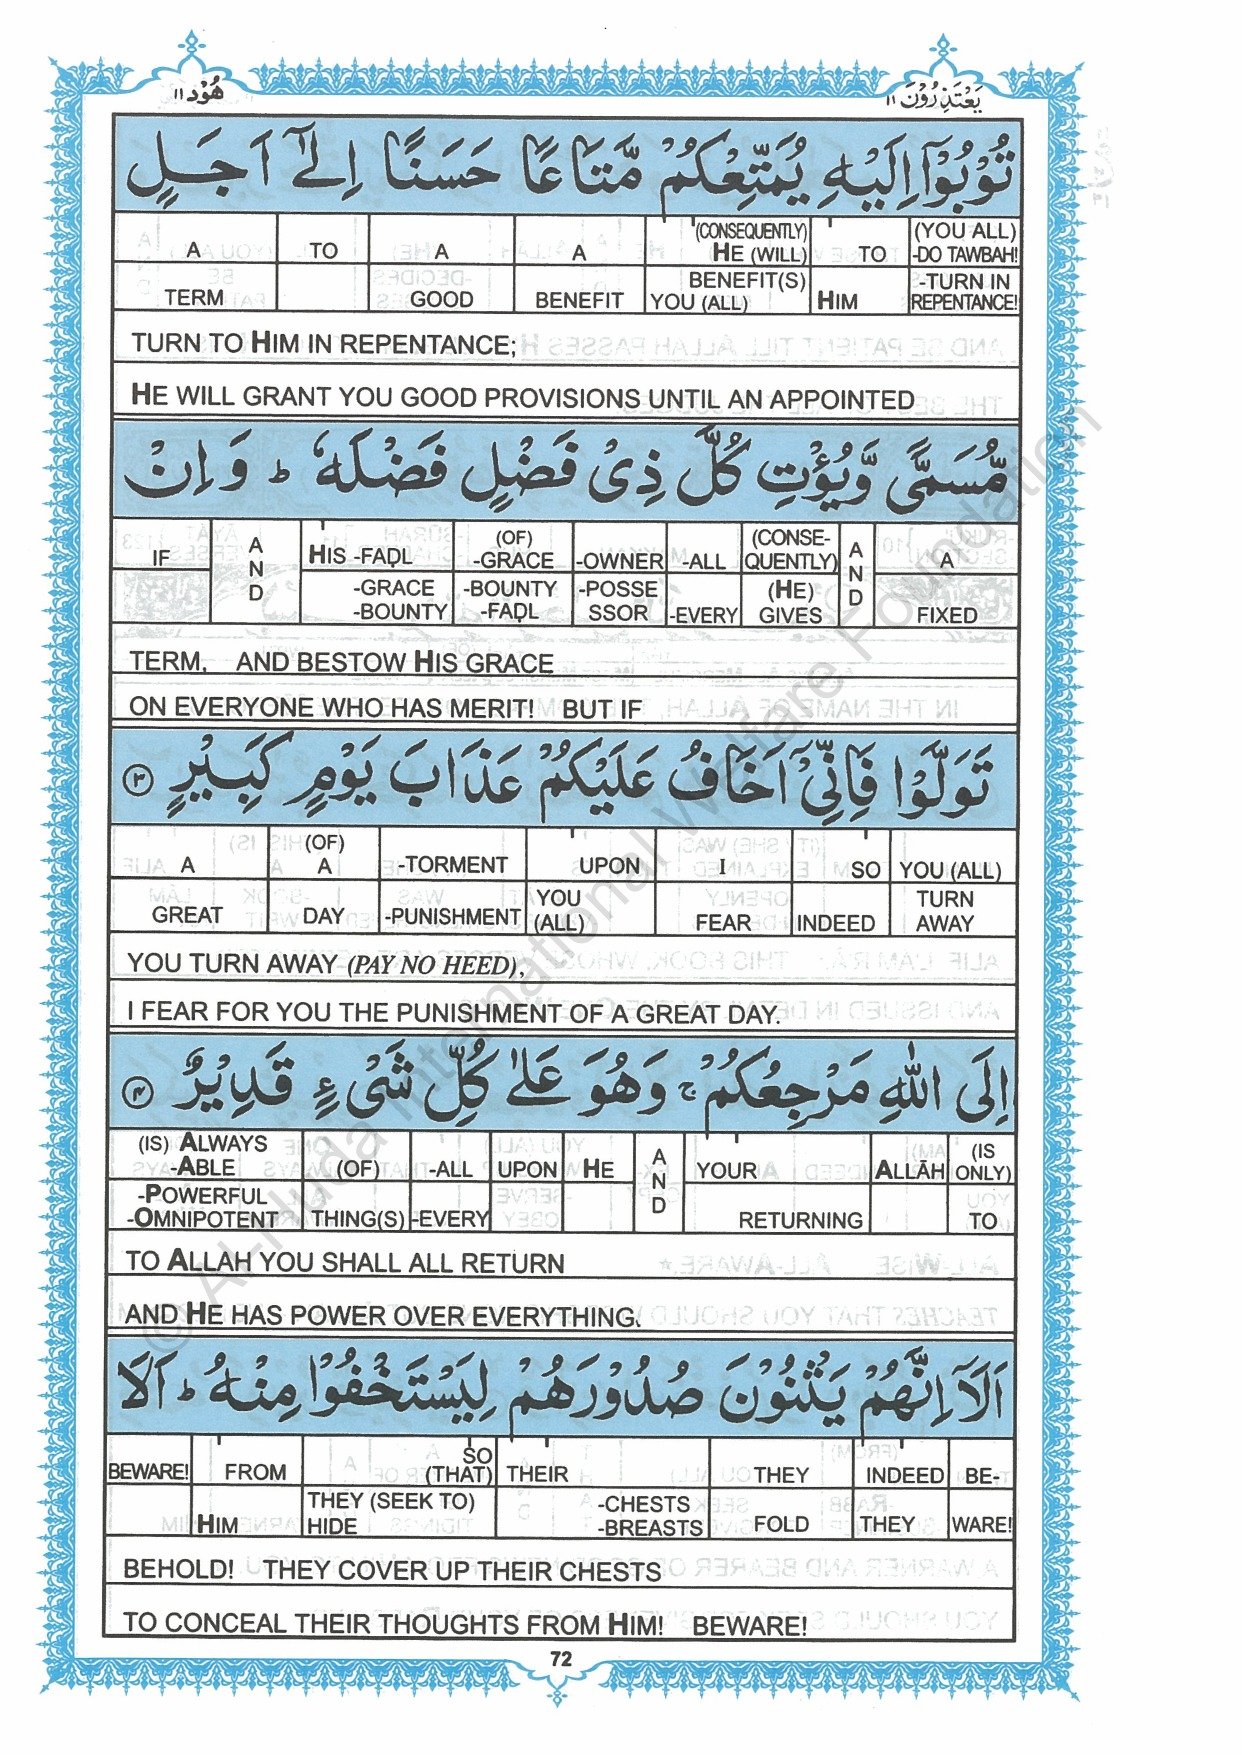 هُوْد ١١ يَعْتَذِرُوْنَ ١١
تُوْبُوْٓا اِلَيْهِ يُمَتِّعْكُمْ مَّتَاعًا حَسَنًا اِلٰٓى اَجَلٍ
A TO A A (CONSEQUENTLY) HE (WILL) TO (YOU ALL) -DO TAWBAH!
TERM GOOD BENEFIT BENEFIT(S) YOU (ALL) HIM -TURN IN REPENTANCE!
TURN TO HIM IN REPENTANCE;
HE WILL GRANT YOU GOOD PROVISIONS UNTIL AN APPOINTED
مُّسَمًّى وَّيُؤْتِ كُلَّ ذِىْ فَضْلٍ فَضْلَهٗ ؕ وَاِنْ
IF AND HIS -FAḌL (OF) -GRACE -OWNER -ALL (CONSE-QUENTLY) AND A
-GRACE -BOUNTY -BOUNTY -FAḌL -POSSE SSOR -EVERY (HE) GIVES FIXED
TERM. AND BESTOW HIS GRACE
ON EVERYONE WHO HAS MERIT! BUT IF
تَوَلَّوْا فَاِنِّىْٓ اَخَافُ عَلَيْكُمْ عَذَابَ يَوْمٍ كَبِيْرٍ ٣
A (OF) A -TORMENT UPON I SO YOU (ALL)
GREAT DAY -PUNISHMENT YOU (ALL) FEAR INDEED TURN AWAY
YOU TURN AWAY (PAY NO HEED),
I FEAR FOR YOU THE PUNISHMENT OF A GREAT DAY.
اِلَى اللّٰهِ مَرْجِعُكُمْ ۚ وَهُوَ عَلٰى كُلِّ شَىْءٍ قَدِيْرٌ ٤
(IS) ALWAYS -ABLE (OF) -ALL UPON HE AND YOUR ALLĀH (IS ONLY)
-POWERFUL -OMNIPOTENT THING(S) -EVERY RETURNING TO
TO ALLAH YOU SHALL ALL RETURN
AND HE HAS POWER OVER EVERYTHING.
اَلَآ اِنَّهُمْ يَثْنُوْنَ صُدُوْرَهُمْ لِيَسْتَخْفُوْا مِنْهُ ؕ اَلَا
BEWARE! FROM SO (THAT) THEIR THEY INDEED BE-
HIM THEY (SEEK TO) HIDE -CHESTS -BREASTS FOLD THEY WARE!
BEHOLD! THEY COVER UP THEIR CHESTS
TO CONCEAL THEIR THOUGHTS FROM HIM! BEWARE!
72
© Al-Huda International Welfare Foundation